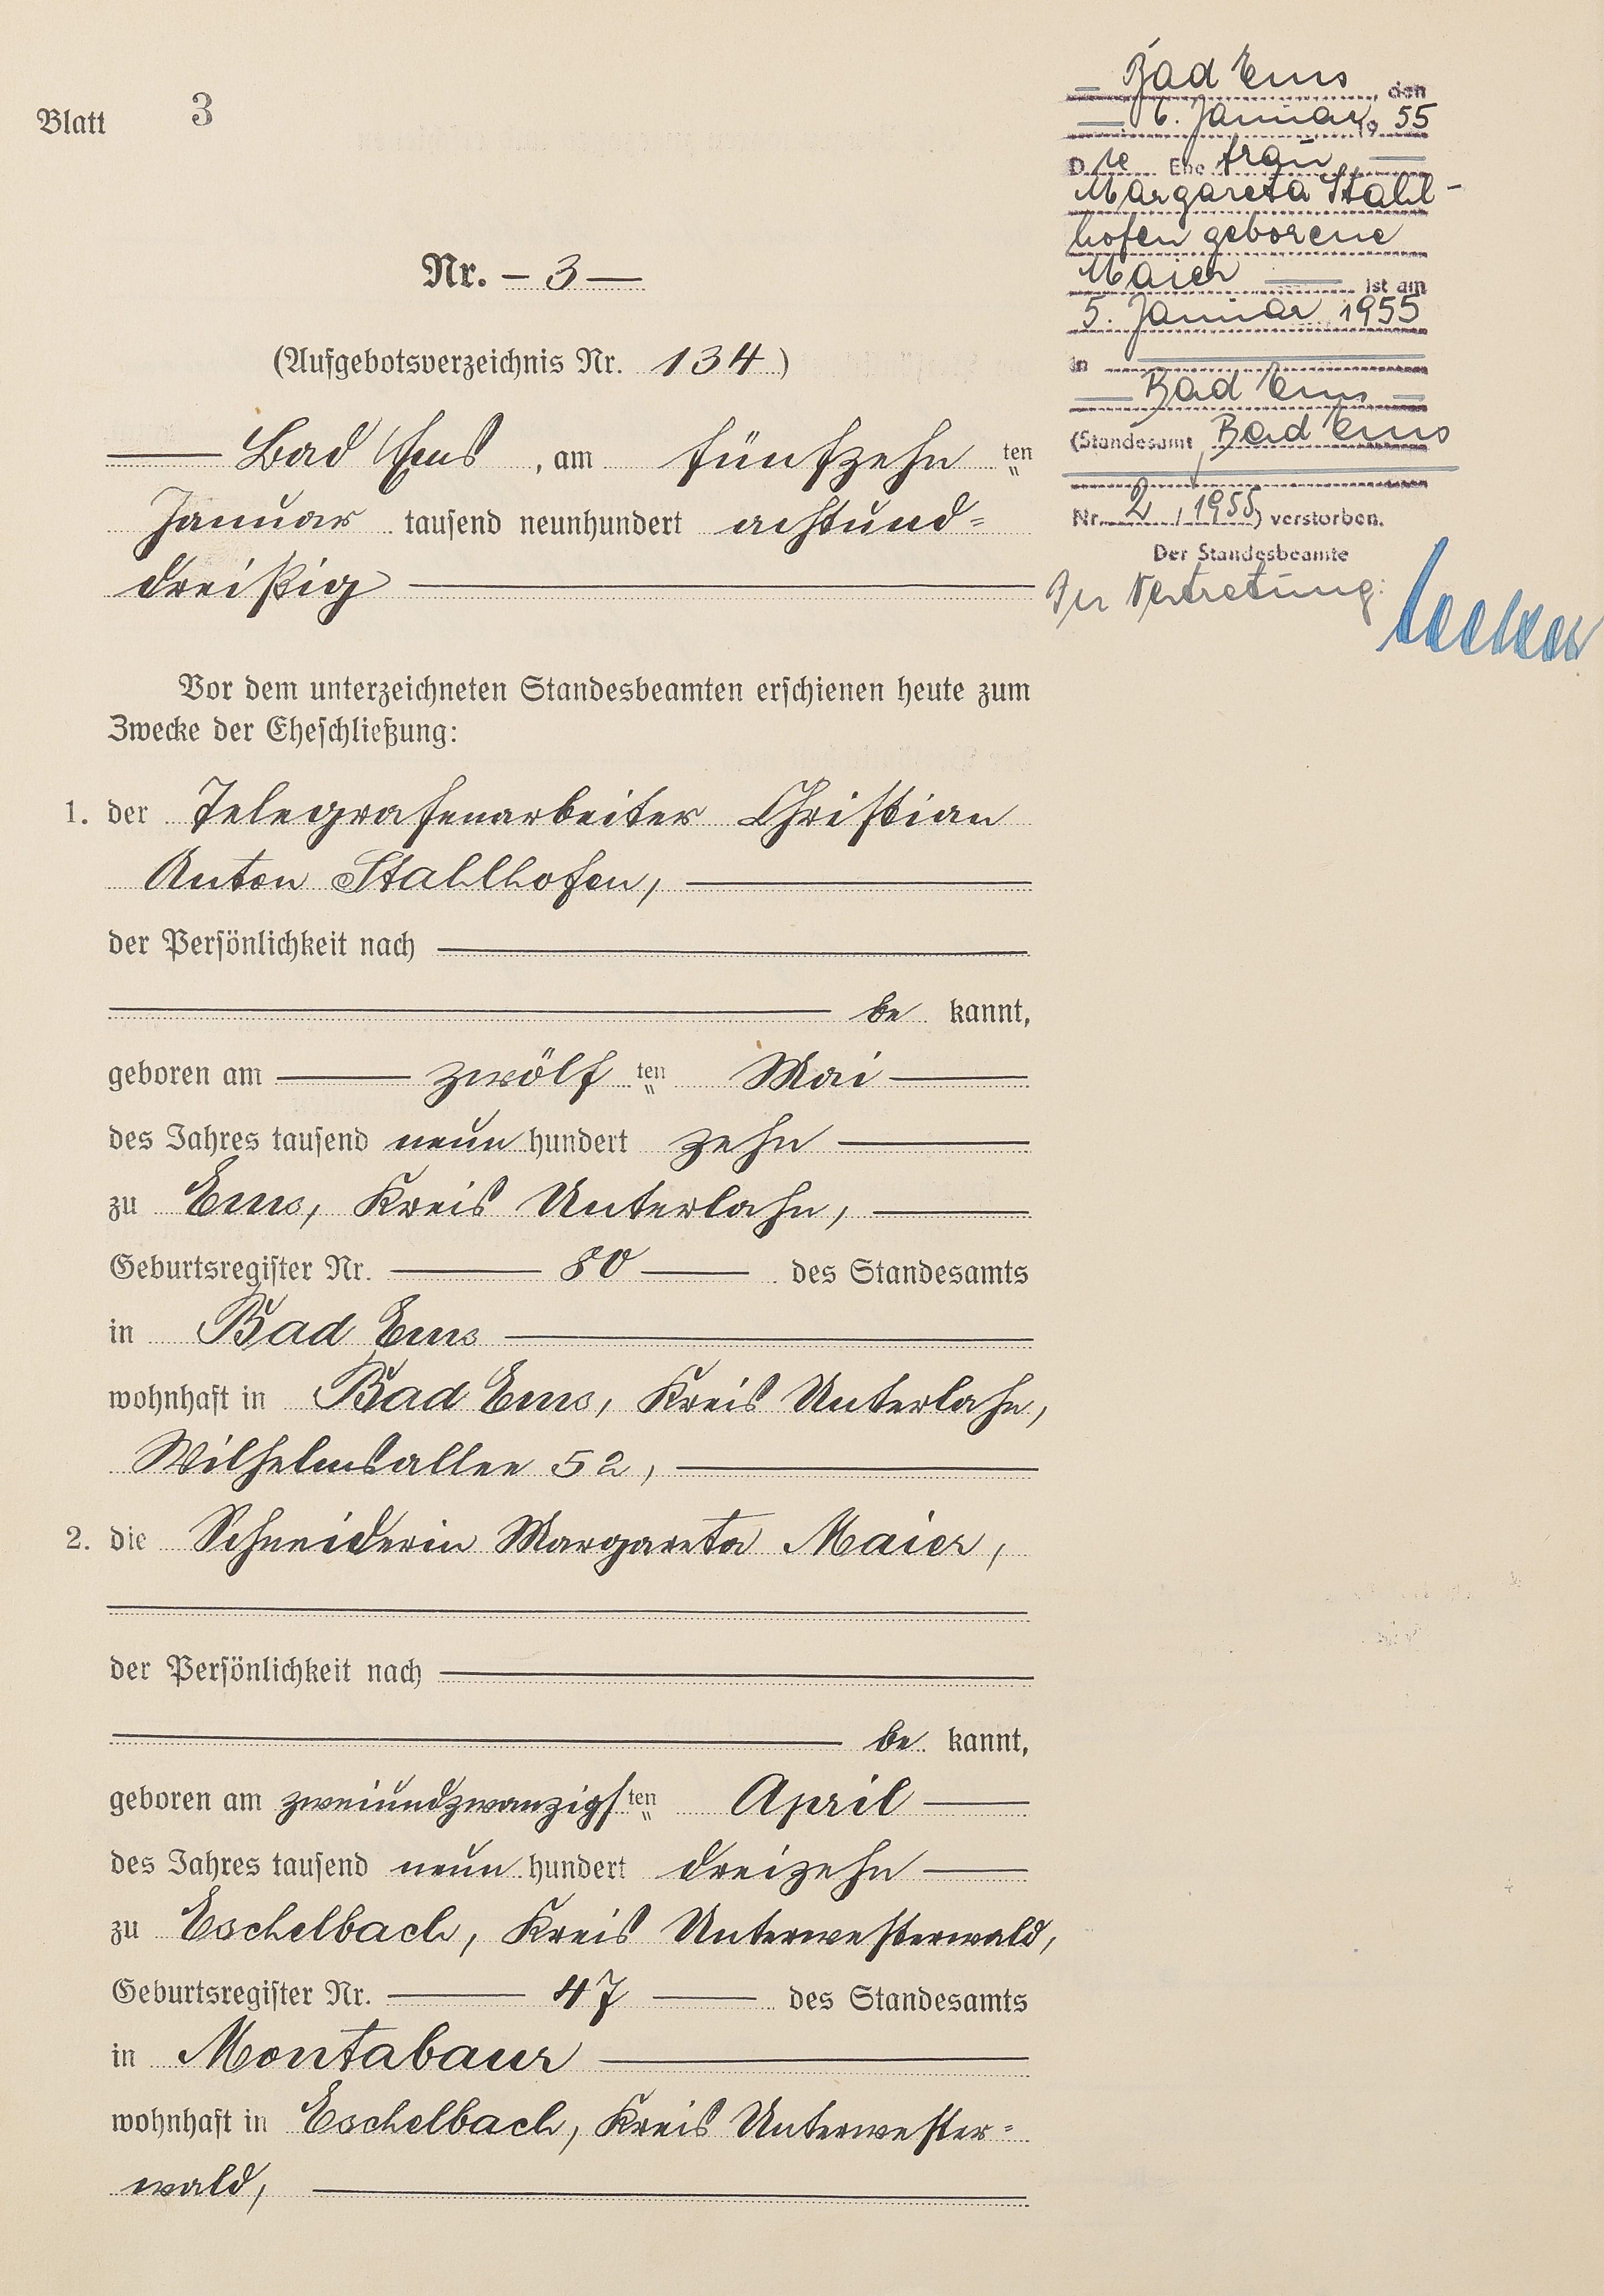 Blatt 3
Nr. – 3 —
(Aufgebotsverzeichnis Nr. 134)
Bad Ems, am fünfzehnten
Januar tausend neunhundert achtund=
dreißig
Vor dem unterzeichneten Standesbeamten erschienen heute zum
Zwecke der Eheschließung:
1. der Telegrafenarbeiter Christian
Anton Stahlhofen,
der Persönlichkeit nach
be kannt,
geboren am zwölften Mai
des Jahres tausend neun hundert zehn
zu Ems, Kreis Unterlahn,
Geburtsregister Nr. 80 des Standesamts
in Bad Ems
wohnhaft in Bad Ems, Kreis Unterlahn,
Wilhelmsallee 52,
2. die Schneiderin Margareta Maier,
der Persönlichkeit nach
be kannt,
geboren am zweiundzwanzigsten April
des Jahres tausend neun hundert dreizehn
zu Eschelbach, Kreis Unterwesterwald,
Geburtsregister Nr. 47 des Standesamts
in Montabaur
wohnhaft in Eschelbach, Kreis Unterwester=
wald,
Bad Ems, den
6. Januar 1955
Die Ehefrau
Margareta Stahl-
hofen geborene
Maier ist am
5. Januar 1955
in
Bad Ems
(Standesamt Bad Ems
Nr. 2 / 1955) verstorben.
Der Standesbeamte
In Vertretung: